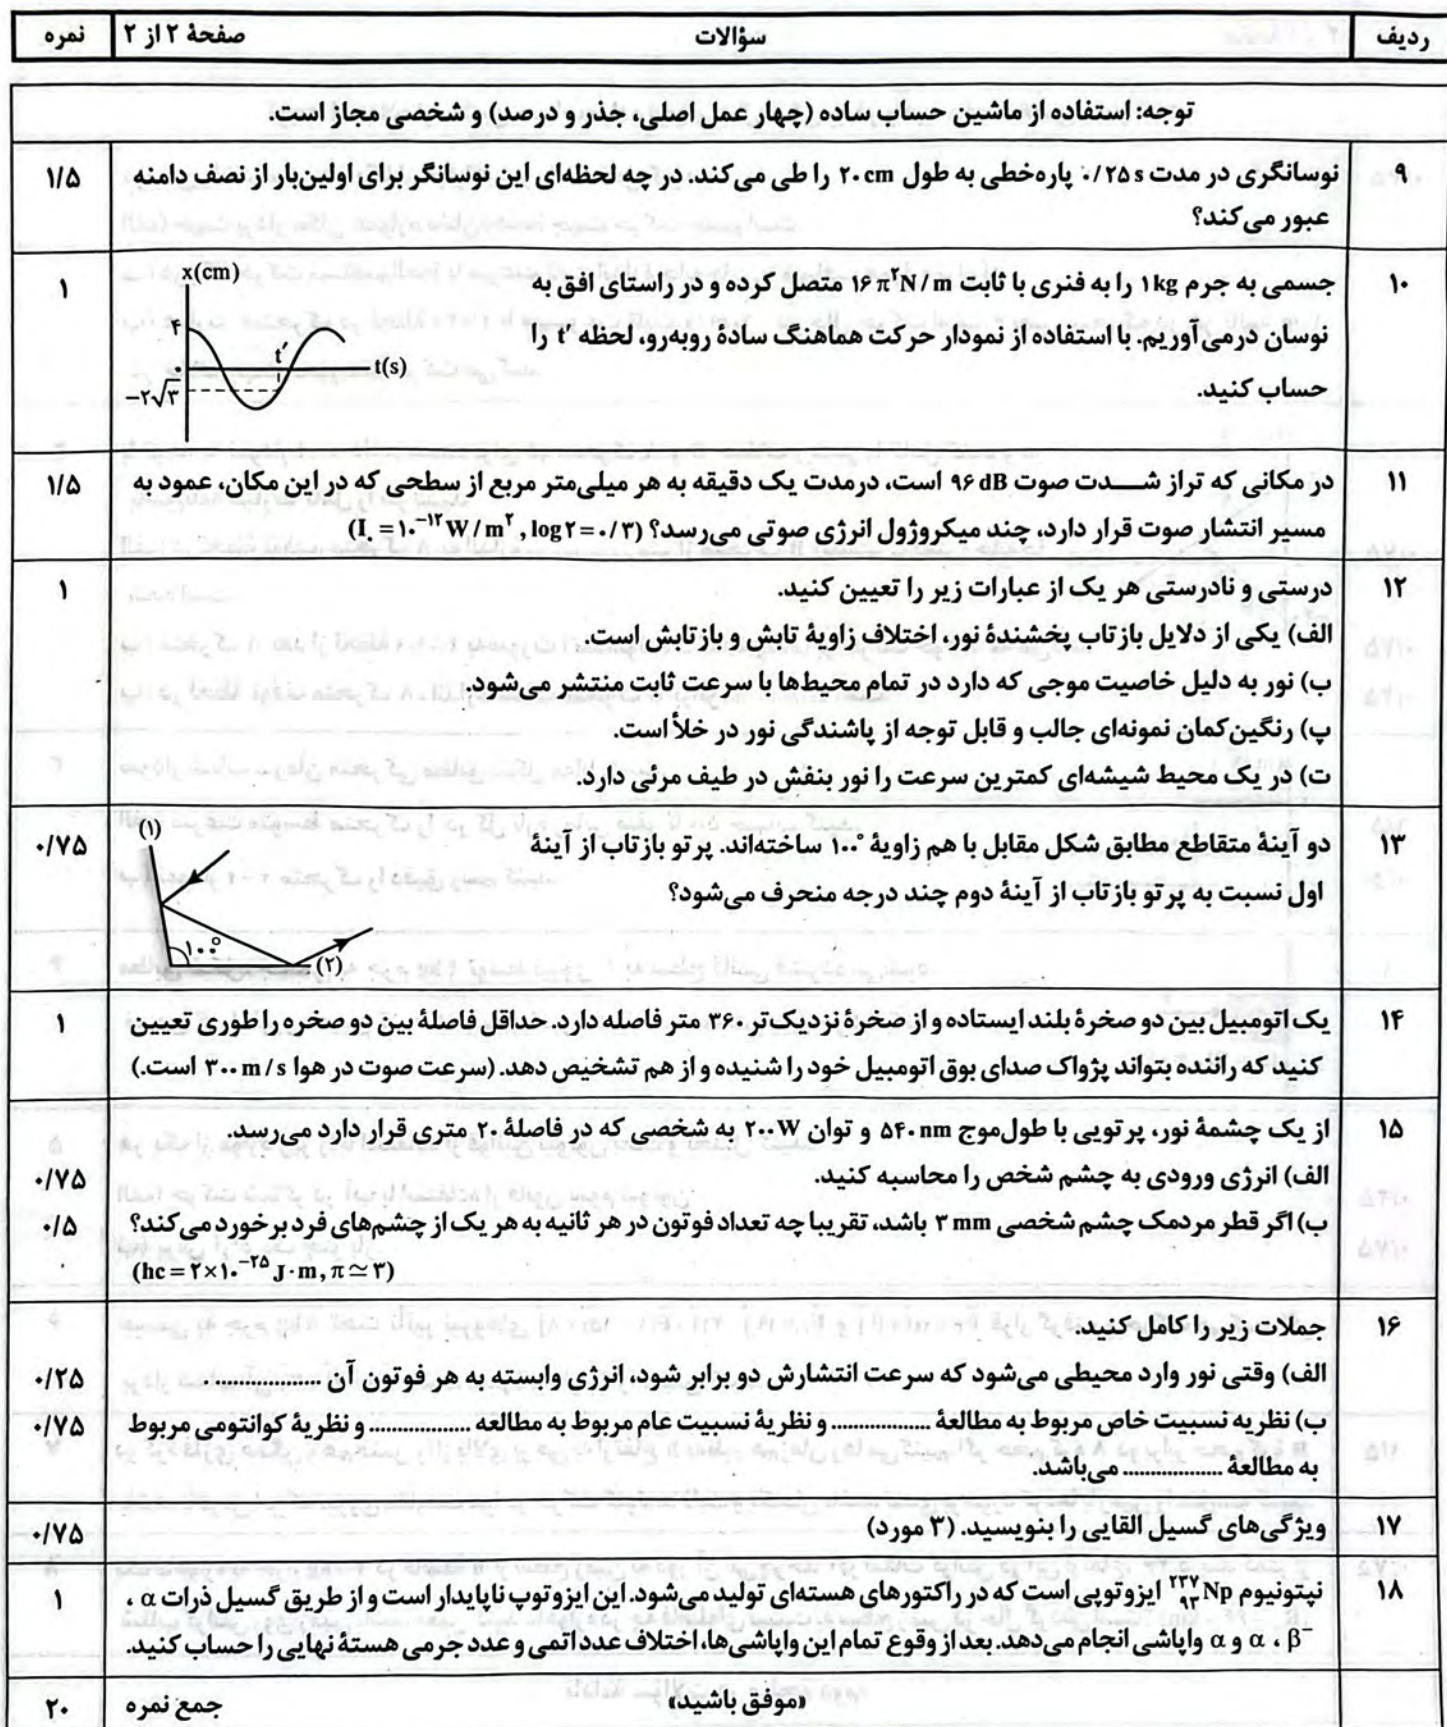 ردیف سؤالات صفحهٔ ۲ از ۲ نمره
توجه: استفاده از ماشین حساب ساده (چهار عمل اصلی، جذر و درصد) و شخصی مجاز است.
۹ نوسانگری در مدت ۰/۲۵ s پاره‌خطی به طول ۲۰ cm را طی می‌کند، در چه لحظه‌ای این نوسانگر برای اولین‌بار از نصف دامنه ۱/۵
عبور می‌کند؟
۱۰ جسمی به جرم ۱ kg را به فنری با ثابت ۱۶π²N/m متصل کرده و در راستای افق به ۱
نوسان درمی‌آوریم. با استفاده از نمودار حرکت هماهنگ سادهٔ روبه‌رو، لحظه t′ را
حساب کنید.
x(cm)
۴
t′
۰
t(s)
−۲√۳
۱۱ در مکانی که تراز شدت صوت ۹۶ dB است، درمدت یک دقیقه به هر میلی‌متر مربع از سطحی که در این مکان، عمود به ۱/۵
مسیر انتشار صوت قرار دارد، چند میکروژول انرژی صوتی می‌رسد؟ (I۰ = ۱۰⁻¹² W/m² , log۲ = ۰/۳)
۱۲ درستی و نادرستی هر یک از عبارات زیر را تعیین کنید. ۱
الف) یکی از دلایل بازتاب پخشندهٔ نور، اختلاف زاویهٔ تابش و بازتابش است.
ب) نور به دلیل خاصیت موجی که دارد در تمام محیط‌ها با سرعت ثابت منتشر می‌شود.
پ) رنگین‌کمان نمونه‌ای جالب و قابل توجه از پاشندگی نور در خلأ است.
ت) در یک محیط شیشه‌ای کمترین سرعت را نور بنفش در طیف مرئی دارد.
۱۳ دو آینهٔ متقاطع مطابق شکل مقابل با هم زاویهٔ ۱۰۰° ساخته‌اند. پرتو بازتاب از آینهٔ ۰/۷۵
اول نسبت به پرتو بازتاب از آینهٔ دوم چند درجه منحرف می‌شود؟
(۱)
۱۰۰°
(۲)
۱۴ یک اتومبیل بین دو صخرهٔ بلند ایستاده و از صخرهٔ نزدیک‌تر ۳۶۰ متر فاصله دارد. حداقل فاصلهٔ بین دو صخره را طوری تعیین ۱
کنید که راننده بتواند پژواک صدای بوق اتومبیل خود را شنیده و از هم تشخیص دهد. (سرعت صوت در هوا ۳۰۰ m/s است.)
۱۵ از یک چشمهٔ نور، پرتویی با طول‌موج ۵۴۰ nm و توان ۲۰۰ W به شخصی که در فاصلهٔ ۲۰ متری قرار دارد می‌رسد.
الف) انرژی ورودی به چشم شخص را محاسبه کنید. ۰/۷۵
ب) اگر قطر مردمک چشم شخصی ۳ mm باشد، تقریبا چه تعداد فوتون در هر ثانیه به هر یک از چشم‌های فرد برخورد می‌کند؟ ۰/۵
(hc = ۲×۱۰⁻²⁵ J·m, π ≃ ۳)
۱۶ جملات زیر را کامل کنید.
الف) وقتی نور وارد محیطی می‌شود که سرعت انتشارش دو برابر شود، انرژی وابسته به هر فوتون آن .................. . ۰/۲۵
ب) نظریه نسبیت خاص مربوط به مطالعهٔ .................. و نظریهٔ نسبیت عام مربوط به مطالعه .................. و نظریهٔ کوانتومی مربوط ۰/۷۵
به مطالعهٔ .................. می‌باشد.
۱۷ ویژگی‌های گسیل القایی را بنویسید. (۳ مورد) ۰/۷۵
۱۸ نپتونیوم ²³⁷₉₃Np ایزوتوپی است که در راکتورهای هسته‌ای تولید می‌شود. این ایزوتوپ ناپایدار است و از طریق گسیل ذرات α ، ۱
β⁻ ، α و α واپاشی انجام می‌دهد. بعد از وقوع تمام این واپاشی‌ها، اختلاف عدد اتمی و عدد جرمی هستهٔ نهایی را حساب کنید.
«موفق باشید» جمع نمره ۲۰